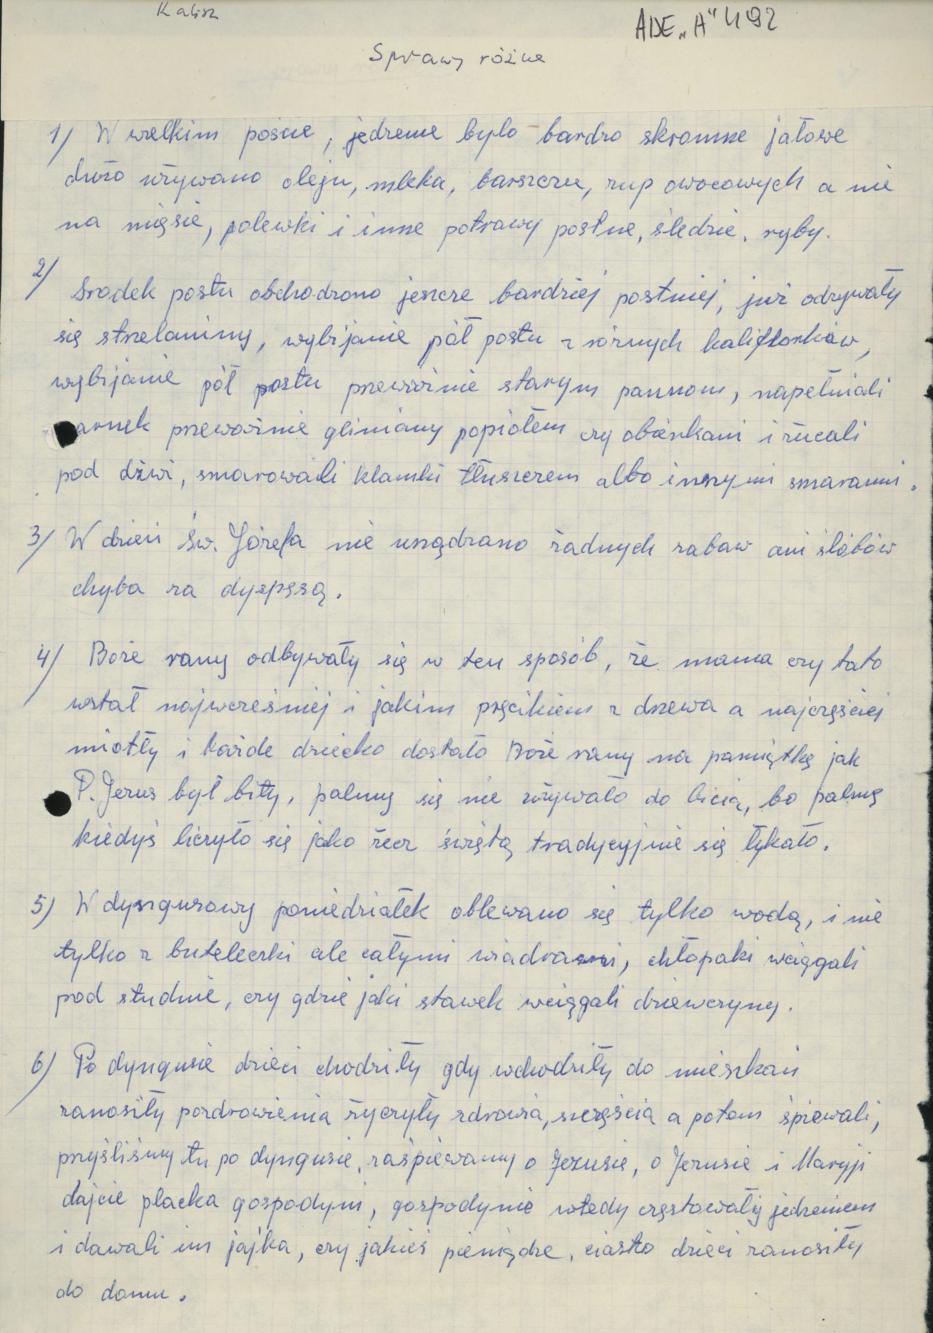 Kalisz
ADE „A" 492
Sprawy różne
1) W wielkim poście, jedzenie było bardzo skromne jałowe
dużo używano oleju, mleka, barszczu, zup owocowych a nie
na mięsie, polewki i inne potrawy postne, śledzie, ryby.
2) Środek postu obchodzono jeszcze bardziej postniej, już odzywały
się strzelaniny, wybijanie pół postu z różnych kaliflorków,
wybijanie pół postu przeważnie starym pannom, napełniali
garnek przeważnie gliniany popiołem czy obierkami i rzucali
pod dźwi, smarowali klamki tłuszczem albo innymi smarami.
3) W dzień Św. Józefa nie urządzano żadnych zabaw ani ślubów
chyba za dyspęsą.
4) Boże rany odbywały się w ten sposób, że mama czy tato
wstał najwcześniej i jakim pręcikiem z drzewa a najczęściej
miotły i każde dziecko dostało Boże rany na pamiątkę jak
P. Jezus był bity, palmy się nie używało do bicia, bo palmę
kiedyś liczyło się jako rzecz świętą tradycyjnie się łykało.
5) W dyngusowy poniedziałek oblewano się tylko wodą, i nie
tylko z buteleczki ale całymi wiadrami, chłopaki wciągali
pod studnie, czy gdzie jaki stawek wciągali dziewczyny.
6) Po dyngusie dzieci chodziły gdy wchodziły do mieszkań
zanosiły pozdrowienia życzyły zdrowia, szczęścia a potem śpiewali,
przyśliśmy tu po dyngusie, zaśpiewamy o Jezusie, o Jezusie i Maryji
dajcie placka gospodyni, gospodynie wtedy częstowały jedzeniem
i dawali im jajka, czy jakieś pieniądze, ciasto dzieci zanosiły
do domu.